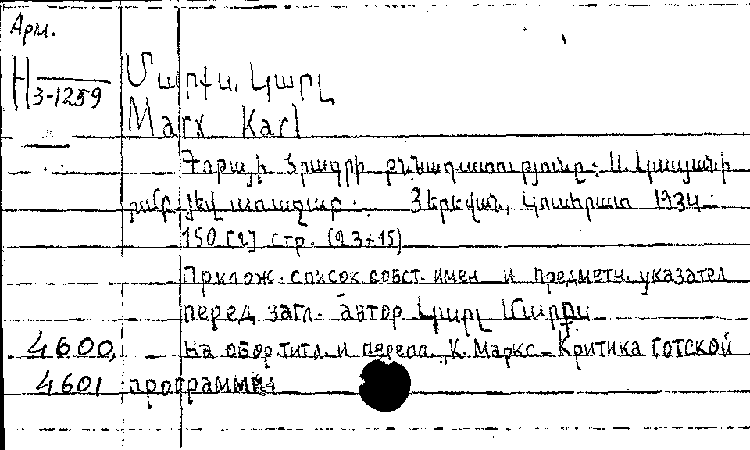 Арм.
Н 3-1259
Մարքս, Կարլ
Marx Karl
Գոթայի Ծրագրի քննադատությունը: Ս.
առաջաբ. Յերևան, Կուսհրատ 1934
150 [2] стр. (23×15)
Прилож. список собст. имен и предметн. указател
перед загл. автор Կարլ Մարքս
4600, на обор. титл. и перепл. К. Маркс - Критика Готской
4601 программы